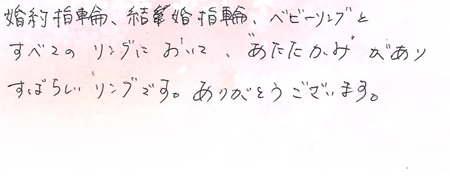 婚約指輪、結婚指輪、ベビーリングと
すべてのリングにおいて、"あたたかみ"があり
すばらしいリングです。ありがとうございます。